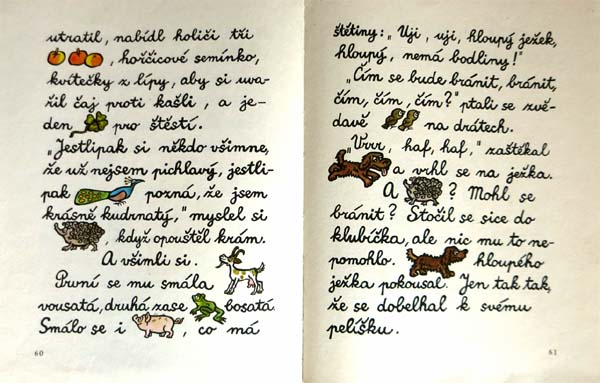 utratil, nabídl holiči tři
, hořčicové semínko,
kvítečky z lípy, aby si uva-
žil čaj proti kašli, a je-
den pro štěstí.
„Jestlipak si někdo všimne,
že už nejsem pichlavý, jestli-
pak pozná, že jsem
krásně kudrnatý," myslel si
, když opouštěl krám.
A všimli si.
První se mu smála
vousatá, druhá zase bosatá.
Smálo se i , co má
60
štětiny: „Uji, uji, hloupý ježek,
hloupý, nemá bodliny!"
„Čím se bude bránit, bránit,
čím, čím, čím?" ptali se zvě-
davě na drátech.
„Vrrr, haf, haf," zaštěkal
a vrhl se na ježka.
A ? Mohl se
bránit? Stočil se sice do
klubíčka, ale nic mu to ne-
pomohlo. hloupého
ježka pokousal. Jen tak tak,
že se dobelhal k svému
pelíšku.
61